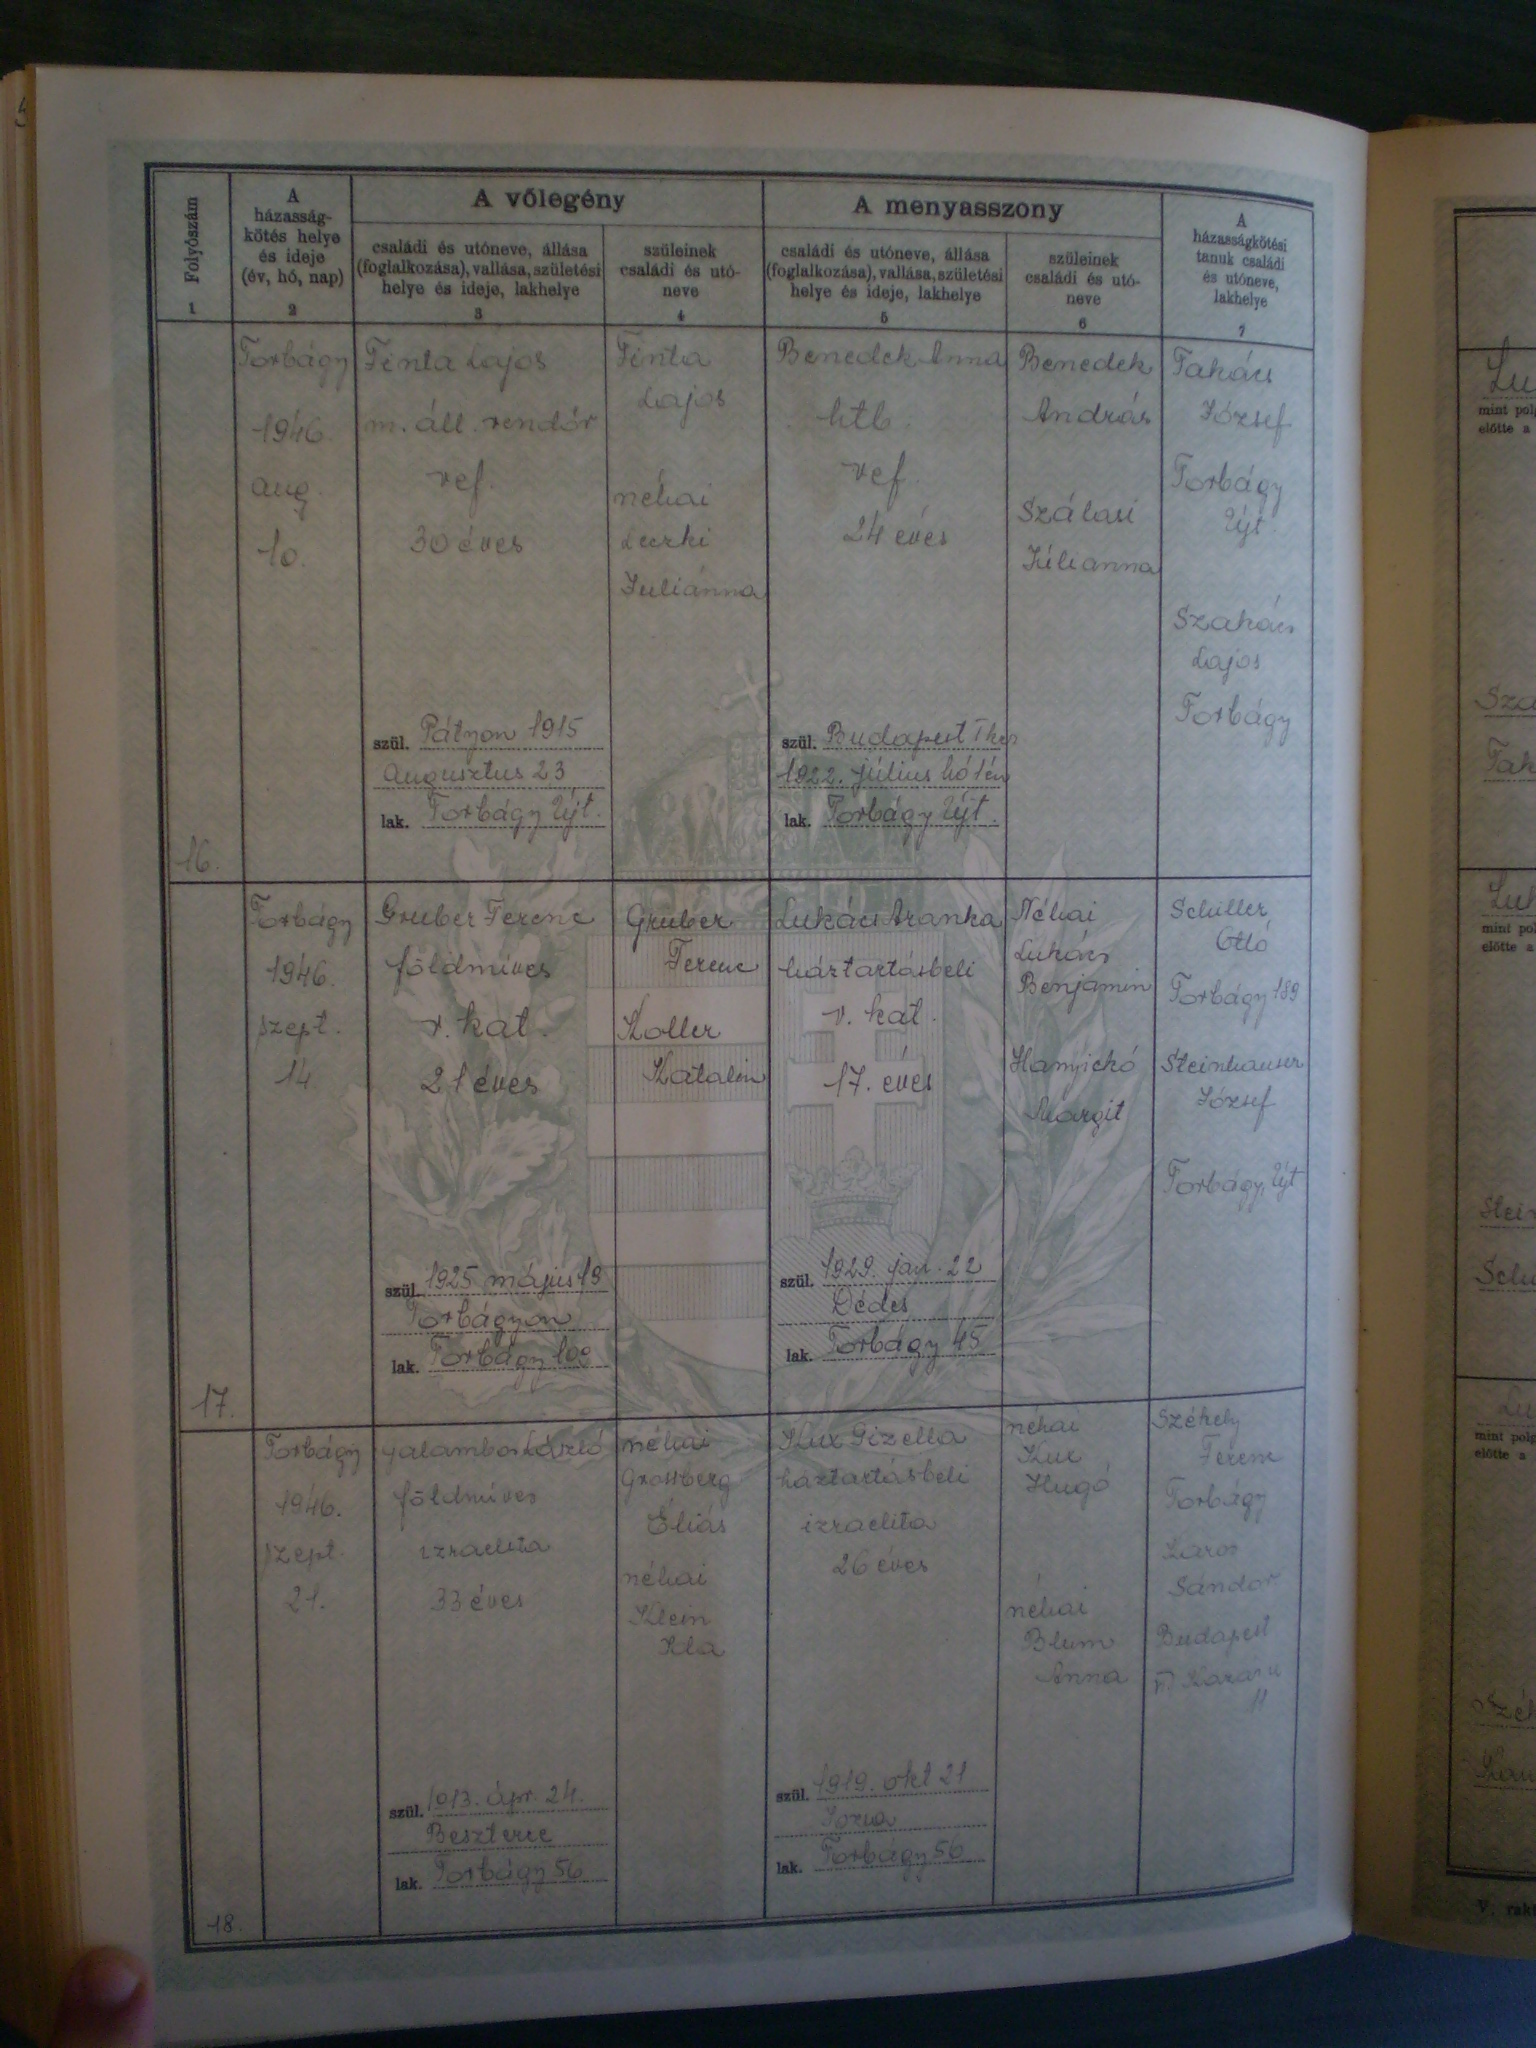 Folyószám
1
A
házasság-
kötés helye
és ideje
(év, hó, nap)
2
A vőlegény
családi és utóneve, állása
(foglalkozása), vallása, születési
helye és ideje, lakhelye
3
szüleinek
családi és utó-
neve
4
A menyasszony
családi és utóneve, állása
(foglalkozása), vallása, születési
helye és ideje, lakhelye
5
szüleinek
családi és utó-
neve
6
A
házasságkötési
tanuk családi
és utóneve,
lakhelye
7
16.
Torbágy
1946.
aug.
10.
Finta Lajos
m. áll. rendőr
ref.
30 éves
szül. Pátyon 1915
Augusztus 23
lak. Torbágy Újt.
Finta
Lajos
néhai
Juliánna
Benedek Anna
htb.
ref.
24 éves
szül. Budapest I ker
1922. július hó 1én
lak. Torbágy Újt.
Benedek
András
Szálasi
Júlianna
Takács
József
Torbágy
Újt.
Szakács
Lajos
Torbágy
17.
Torbágy
1946.
szept.
14
Gruber Ferenc
földmíves
r. kat.
21 éves
szül. 1925 május 19
Torbágyon
lak. Torbágy 109
Gruber
Ferenc
Koller
Katalin
Lukács Aranka
háztartásbeli
r. kat.
17. éves
szül. 1929. jan. 22
Dédes
lak. Torbágy 45
Néhai
Lukács
Benjamin
Margit
Schiller
Ottó
Torbágy 189
Steinhauser
József
Torbágy, Újt
18.
Torbágy
1946.
szept.
21.
Galambos László
földmíves
izraelita
33 éves
szül. 1913. ápr. 24.
Beszterce
lak. Torbágy 56
néhai
Grossberg
Éliás
néhai
Klein
Kux Gizella
háztartásbeli
izraelita
26 éves
szül. 1919. okt 21
lak. Torbágy 56
néhai
Kux
Hugó
néhai
Blum
Anna
Székely
Ferenc
Torbágy
Sándor
Budapest
11
mint polg
előtte a
mint pol
előtte a
mint polg
előtte a